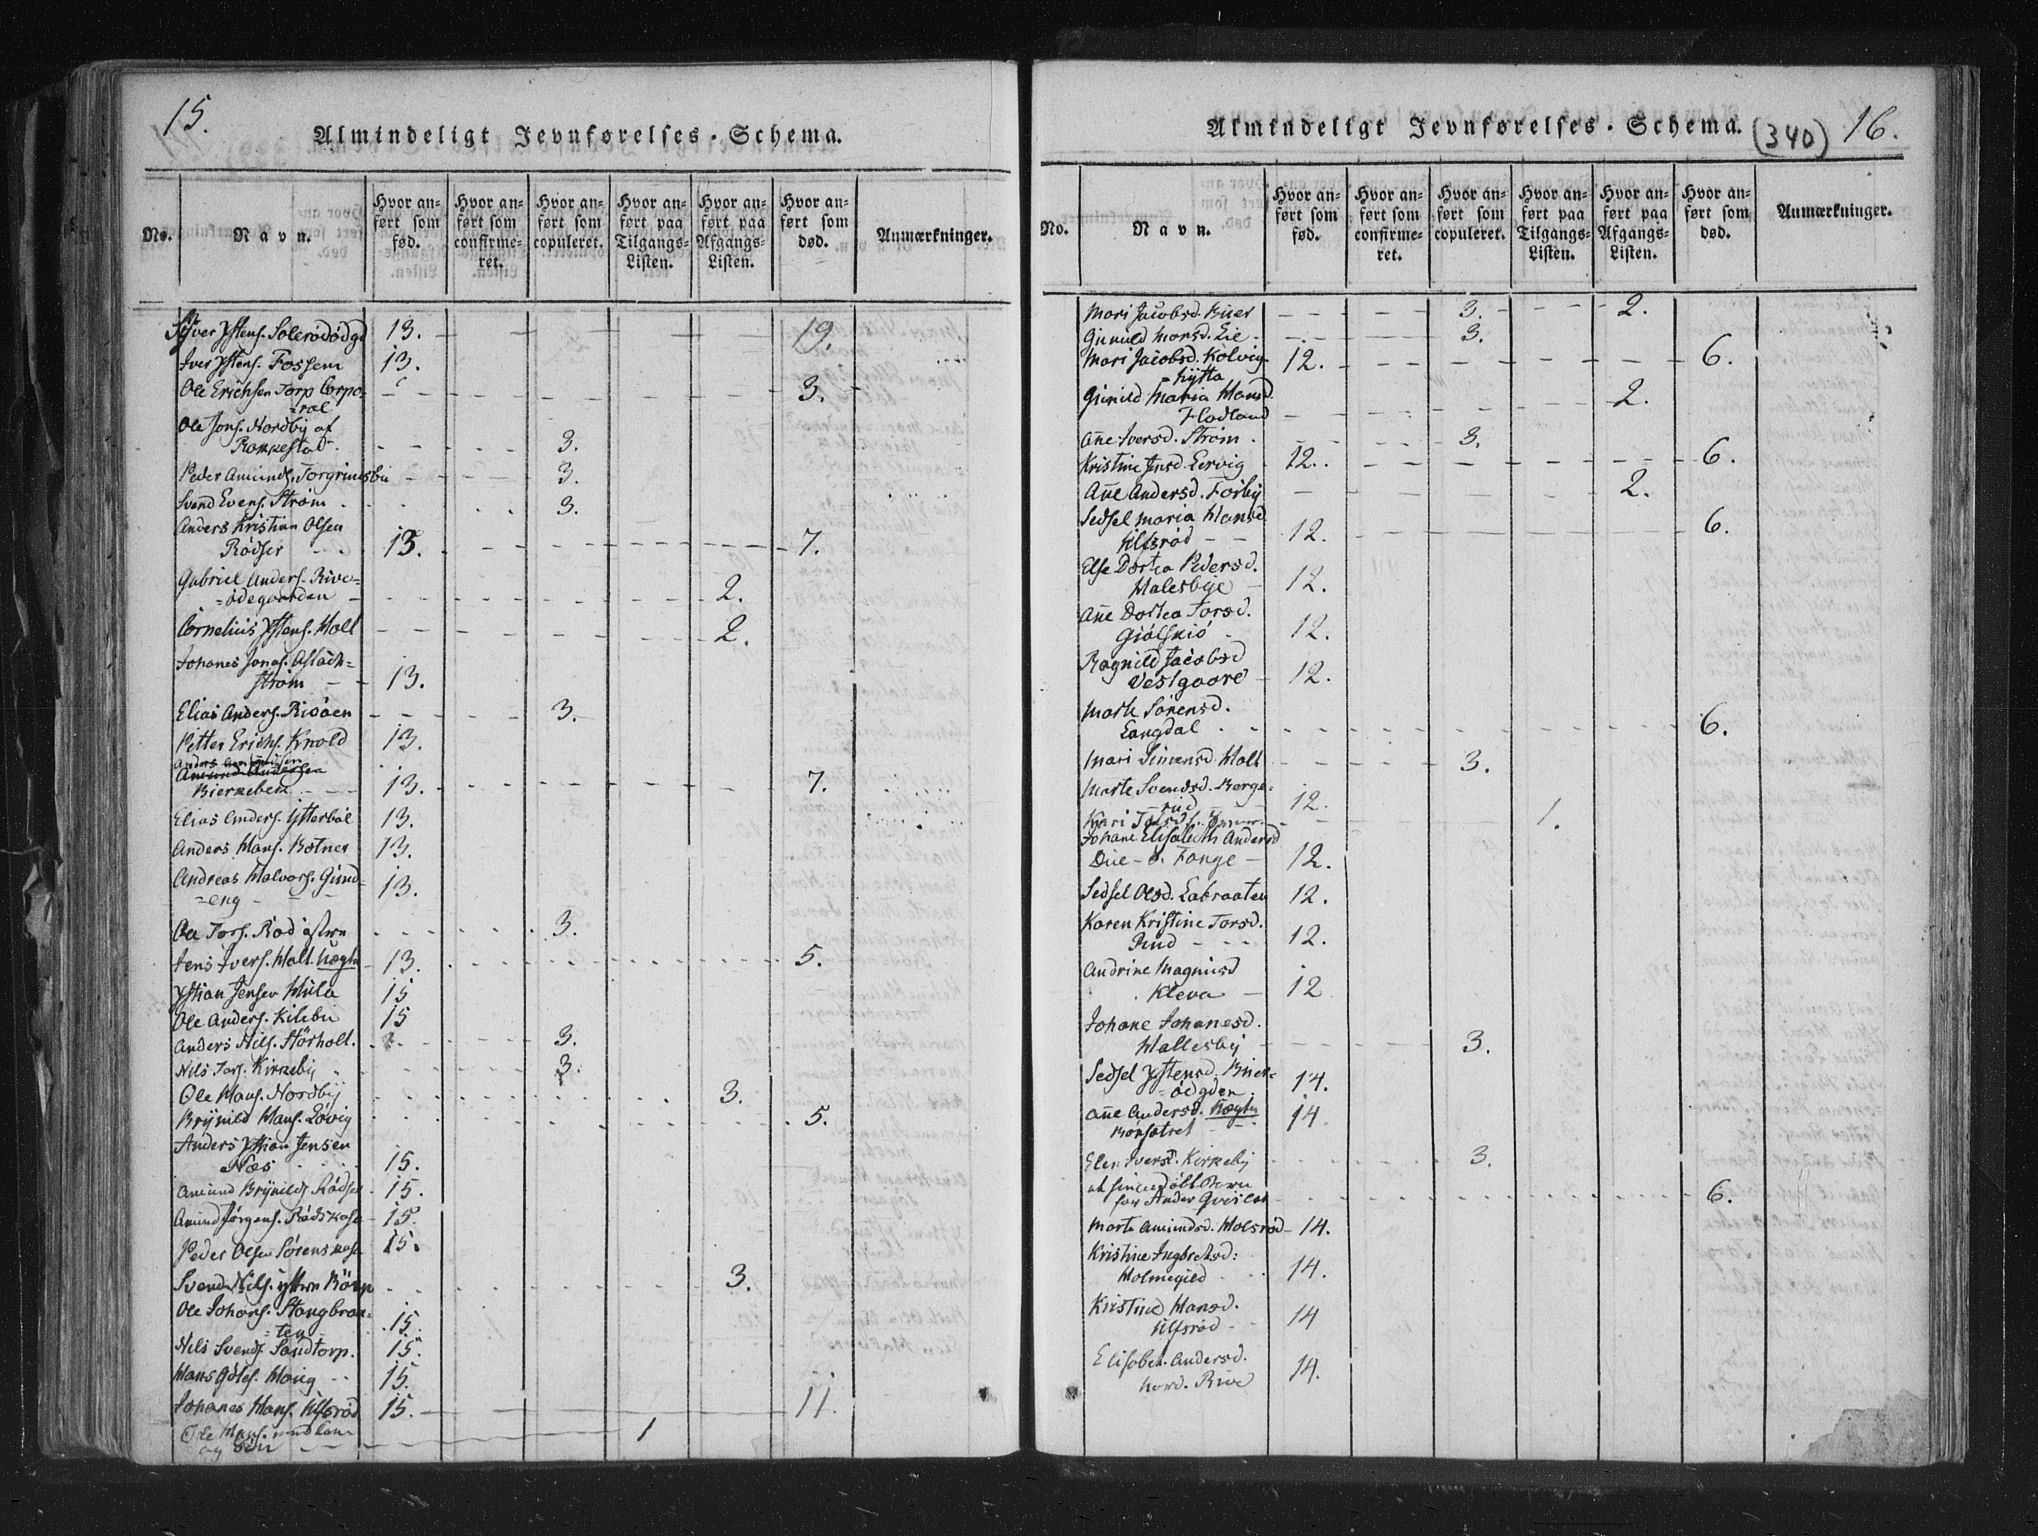 15.
Almindeligt Jevnførelses-Schema.
No.
Navn.
Hvor an-
ført som
fød.
Hvor an-
ført som
confirme-
ret.
Hvor an-
ført som
copuleret.
Hvor an-
ført paa
Tilgangs-
Listen.
Hvor an-
ført paa
Afgangs-
Listen.
Hvor an-
ført som
død.
Anmærkninger.
Syver Ystens. Solerødødgd 13. 19.
Iver Ystens. Fossem 13.
Ole Erichsen Torp Corpo- 3.
=ral
Ole Jons. Nordby af
Rommestad 3.
Peder Amunds. Torgrimsbÿe 3.
Svend Evens. Strøm 3.
Anders Kristian Olsen
Rødser 13. 7.
Gabriel Anders. Rive-
=ødegaarden 2.
Cornelius Ystens. Holt 2.
Johanes Jonas. Aslach=
strøm 13.
Elias Anders. Risøen 3.
Petter Erichs. Knold 13.
Anders Amundsen
Amund Andersen
Bierkebek 13. 7.
Elias Anders. Ytterbøl 13.
Anders Hans. Botner 13.
Andreas Halvors. Gund-
=eng 13.
Ole Tors. Rød østre 3.
Jens Ivers. Holt. Uægte 13. 5.
Ystian Jensen Hula 15
Ole Anders. Kilebu 15
Anders Nils. Störholt. 3.
Nils Tors. Kirkeby 3.
Ole Hans. Nordbÿ 3.
Brÿnild Hans. Løvig 5.
Anders Ystian Jensen
Næs 15.
Amund Brÿnilds. Rödser 15.
Amund Jørgens. Rödskase 15.
Peder Olsen Sørenskase 15.
Svend Nils. ÿttre Bön 3.
Ole Johans. Stangbraa-
=ten 15.
Nils Svends. Sandtorp. 15.
Hans Giöls. Houg 15.
Johanes Hans. Ulfsrød 15. 11.
Ole Hans. med kone
og Søn 1
(340) 16.
Almindeligt Jevnførelses-Schema.
No.
Navn.
Hvor an-
ført som
fød.
Hvor an-
ført som
confirme-
ret.
Hvor an-
ført som
copuleret.
Hvor an-
ført paa
Tilgangs-
Listen.
Hvor an-
ført paa
Afgangs-
Listen.
Hvor an-
ført som
død.
Anmærkninger.
Mari Jacobsd. Buer 3. 2.
Gunuld Monsd. Lie 3.
Mari Jacobsd. Kolvig- 12. 6.
=hytta
Gunild Maria Hansd. 2.
Hodland
Añe Iversd. Strøm 3.
Kristine Jensd. Lervig 12. 6.
Añe Andersd. Fosby 2.
Sedsel Maria Hansd. 6.
Ulfsrød 12.
Else Dortea Pedersd.
Halesbye 12.
Añe Dortea Torsd.
Giølsniö 12.
Ragnild Jacobsd
Vestgaard 12.
Marte Sørensd.
Langdal 6.
Mari Simensd. Holt 3.
Marte Svendsd. Berge-
rud 12.
Kari 1.
Johane Elisabeth Andersd
Due- ö. Tange 12.
Sedsel Olsd. Labraaten 12.
Karen Kristine Torsd.
Rud 12.
Andrine Magnusd
Kleva 12
Johane Johanesd.
Hallesby 3.
Sedsel Ystensd. Buer-
=ødgden 14.
Añe Andersd. Uægte 14.
Börsætret
Elen Iversd. Kirkeby 3.
for Ander 6.
Marte Amundsd. Holsrød 14.
Kristine Ingbretsd:
Holmegild 14.
Kirstine Hansd.
Ulfsrød 14
Elisabet. Andersd.
Nord. Rive 14.